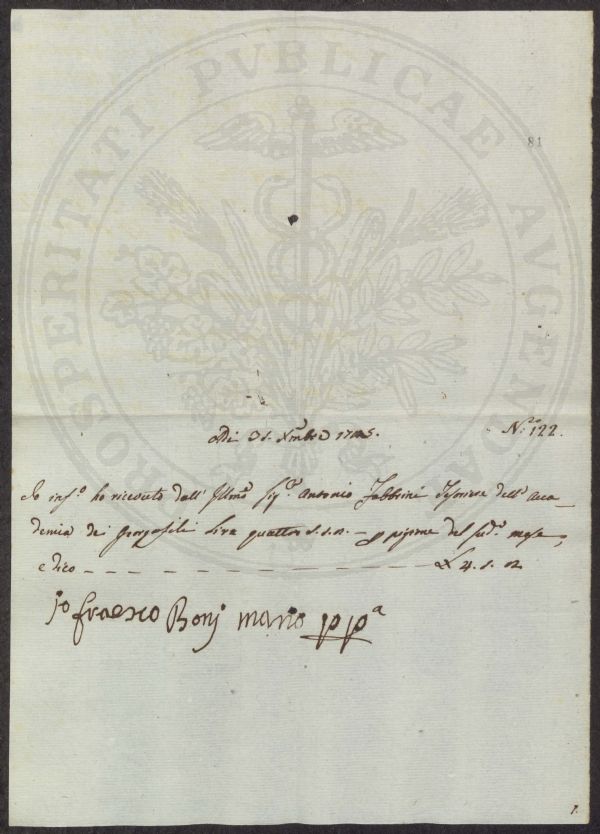 PROSPERITATI PVBLICAE AVGENDAE
81
Adì 31. Xmbre 17
N.º 122.
Io inf.º ho ricevuto dall' Illmo Sig.r Antonio Fabbrini Tesoriere dell' Acca_
demia dei Georgofili Lire quattro s. s. d. _ p pigione del sud.º mese,
e dico _ _ _ £ 4. s. d
jo fraesco Bonj mano pp.a
1.